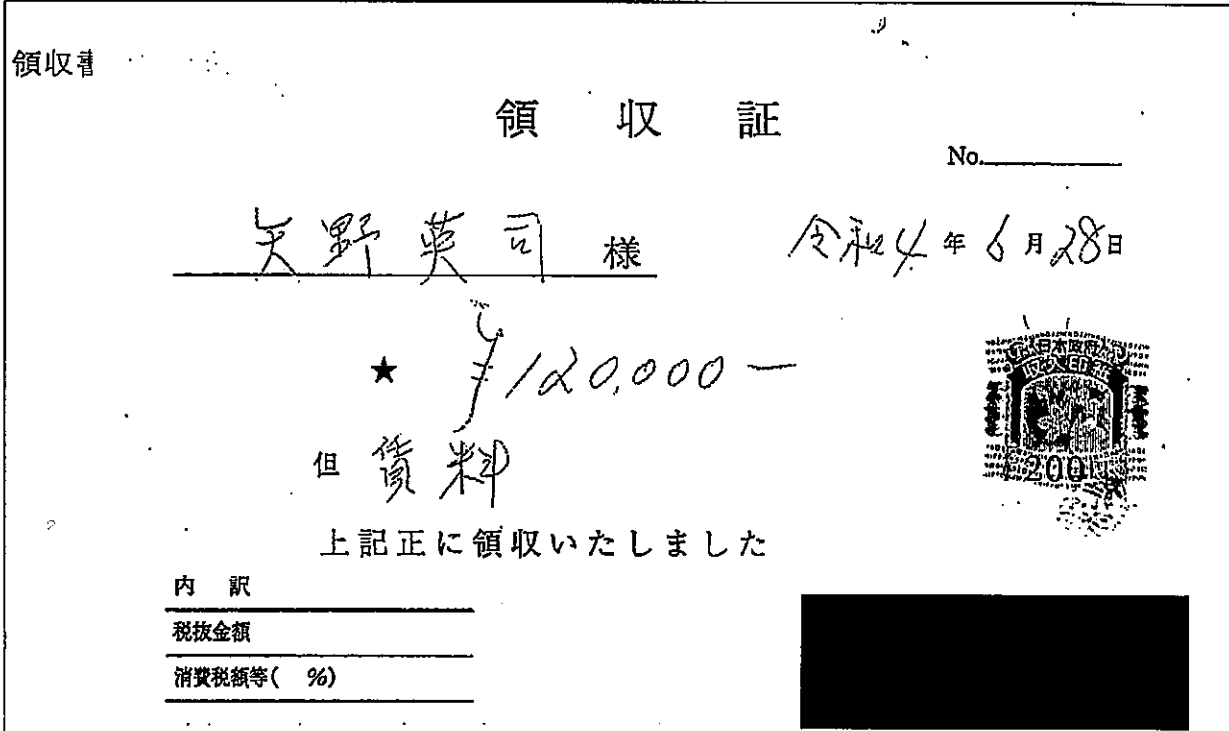 領収書
領収証
No.
矢野英司 様
令和4年6月28日
★ ¥120,000-
但 賃料
日本政府
200
上記正に領収いたしました
内訳
税抜金額
消費税額等( %)